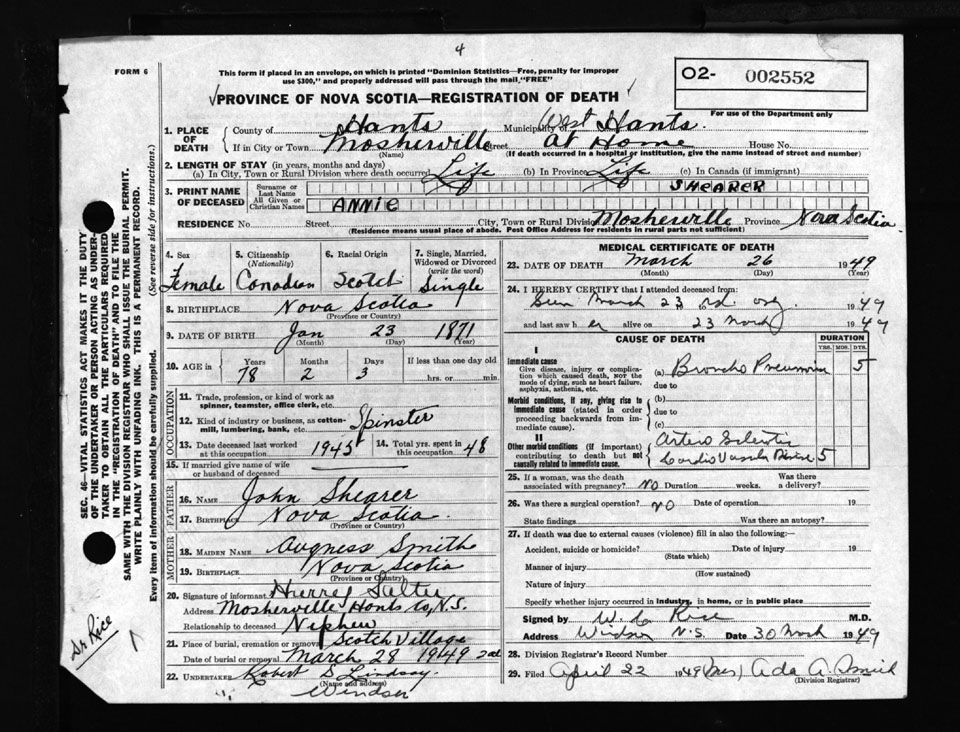 4
FORM 6
This form if placed in an envelope, on which is printed "Dominion Statistics—Free, penalty for improper
use $300," and properly addressed will pass through the mail, "FREE"
O2- 002552
For use of the Department only
PROVINCE OF NOVA SCOTIA—REGISTRATION OF DEATH
SEC. 46—VITAL STATISTICS ACT MAKES IT THE DUTY
OF THE UNDERTAKER OR PERSON ACTING AS UNDER-
TAKER TO OBTAIN ALL THE PARTICULARS REQUIRED
IN THE "REGISTRATION OF DEATH" AND TO FILE THE
SAME WITH THE DIVISION REGISTRAR WHO SHALL ISSUE THE BURIAL PERMIT.
WRITE PLAINLY WITH UNFADING INK. THIS IS A PERMANENT RECORD.
Every item of information should be carefully supplied. (See reverse side for instructions.)
Dr Rice
1. PLACE OF DEATH County of Hants Municipality West Hants.
If in City or Town Mosherville Street at Home House No.
(Name) (If death occurred in a hospital or institution, give the name instead of street and number)
2. LENGTH OF STAY (in years, months and days)
(a) In City, Town or Rural Division where death occurred Life (b) In Province Life (c) In Canada (if immigrant)
3. PRINT NAME OF DECEASED Surname or Last Name SHEARER
All Given or Christian Names ANNIE
RESIDENCE No. Street City, Town or Rural Division Mosherville Province Nova Scotia.
(Residence means usual place of abode. Post Office Address for residents in rural parts not sufficient)
4. Sex 5. Citizenship (Nationality) 6. Racial Origin 7. Single, Married, Widowed or Divorced (write the word)
Female Canadian Scotch Single
8. BIRTHPLACE Nova Scotia
(Province or Country)
9. DATE OF BIRTH Jan 23 1871
(Month) (Day) (Year)
10. AGE in Years Months Days If less than one day old
78 2 3 hrs. or min.
OCCUPATION
11. Trade, profession, or kind of work as
spinner, teamster, office clerk, etc.
12. Kind of industry or business, as cotton-
mill, lumbering, bank, etc. Spinster
13. Date deceased last worked at this occupation 1945 14. Total yrs. spent in this occupation 48
15. If married give name of wife
or husband of deceased
FATHER
16. NAME John Shearer
17. BIRTHPLACE Nova Scotia.
(Province or Country)
MOTHER
18. MAIDEN NAME Augness Smith
19. BIRTHPLACE Nova Scotia
(Province or Country)
20. Signature of informant Salter
Address Mosherville Hants Co, N.S.
Relationship to deceased Nephew
21. Place of burial, cremation or removal Scotch Village
Date of burial or removal March 28 1949
22. UNDERTAKER Robert D Lindsay.
(Name and address)
Windsor
MEDICAL CERTIFICATE OF DEATH
23. DATE OF DEATH March 26 1949
(Month) (Day) (Year)
24. I HEREBY CERTIFY that I attended deceased from:
March 23 rd. to 1949
and last saw h er alive on 23 March 1949
CAUSE OF DEATH DURATION
YRS. MOS. DYS.
I
Immediate cause
Give disease, injury or complica-
tion which caused death, NOT the
mode of dying, such as heart failure,
asphyxia, asthenia, etc.
(a) Broncho Pneumonia 5
due to
Morbid conditions, if any, giving rise to
immediate cause (stated in order
proceeding backwards from
immediate cause)
(b)
due to
(c)
II
Other morbid conditions (if important)
contributing to death but not
causally related to immediate cause.
Arterio Sclerotic
Cardio Vascular Disease 5
25. If a woman, was the death
associated with pregnancy? NO Duration weeks. Was there a delivery?
26. Was there a surgical operation? NO Date of operation 19
State findings Was there an autopsy?
27. If death was due to external causes (violence) fill in also the following:—
Accident, suicide or homicide? Date of injury 19
(State which)
Manner of injury
(How sustained)
Nature of injury
Specify whether injury occurred in industry, in home, or in public place
Signed by Rice M.D.
Address Windsor N.S. Date 30 March 1949
28. Division Registrar's Record Number
29. Filed April 22 1949 (Mrs) Ada A.
(Division Registrar)